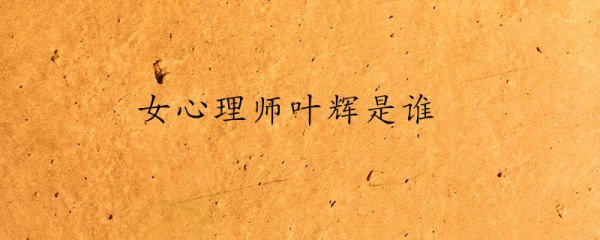 女心理师叶辉是谁